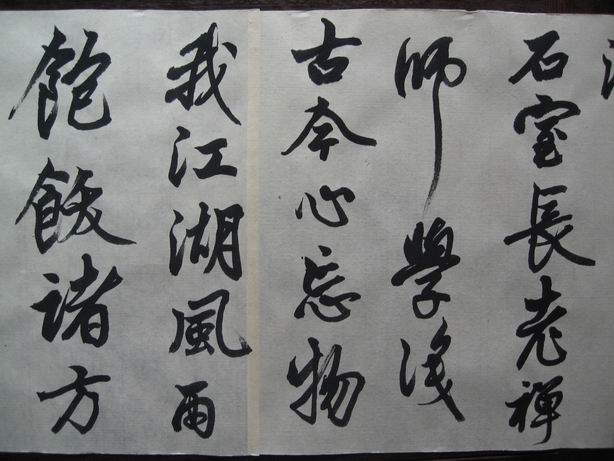 石室長老禪
師學
古今心忘物
我江湖風雨
飽諸方